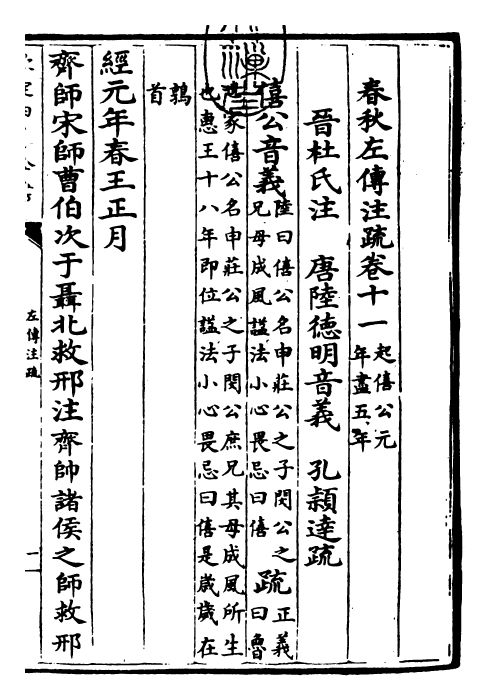 春秋左傳注疏卷十一 起僖公元年盡五年
晉杜氏注 唐陸德明音義 孔穎達疏
僖公音義 陸曰僖公名申莊公之子閔公之兄母成風謚法小心畏忌曰僖 疏 正義曰魯
家僖公名申莊公之子閔公庶兄其母成風所生
也惠王十八年即位謚法小心畏忌曰僖是歲歲在
鶉首
經元年春王正月
齊師宋師曹伯次于聶北救邢注齊帥諸侯之師救邢
左傳注疏
一